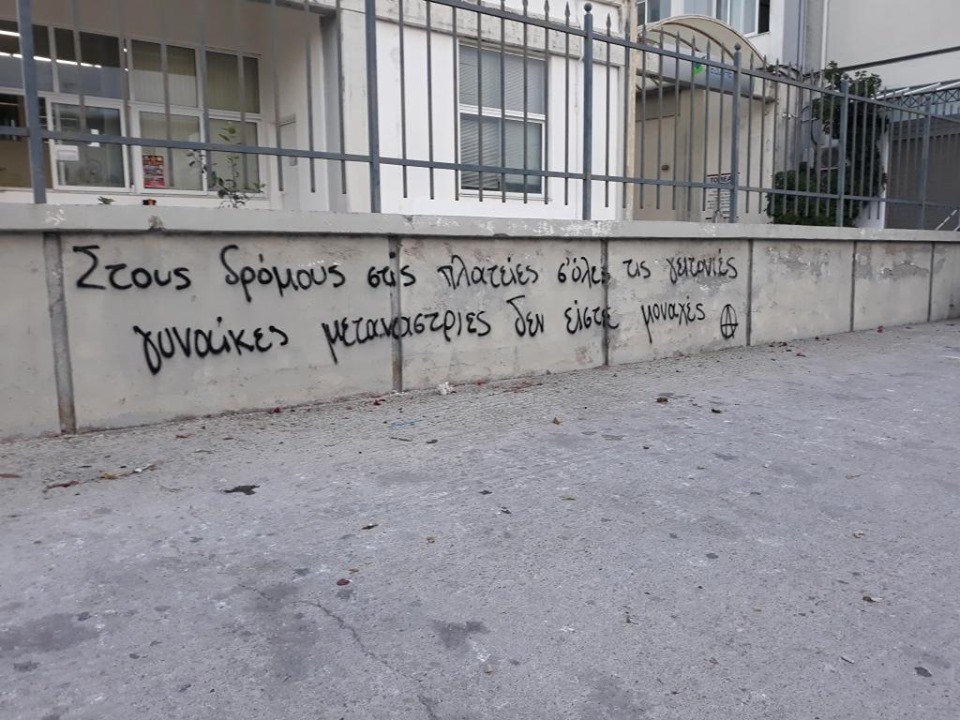 Στους δρόμους στις πλατείες σ'όλες τις γειτονιές
γυναίκες μετανάστριες δεν είστε μοναχές Ⓐ